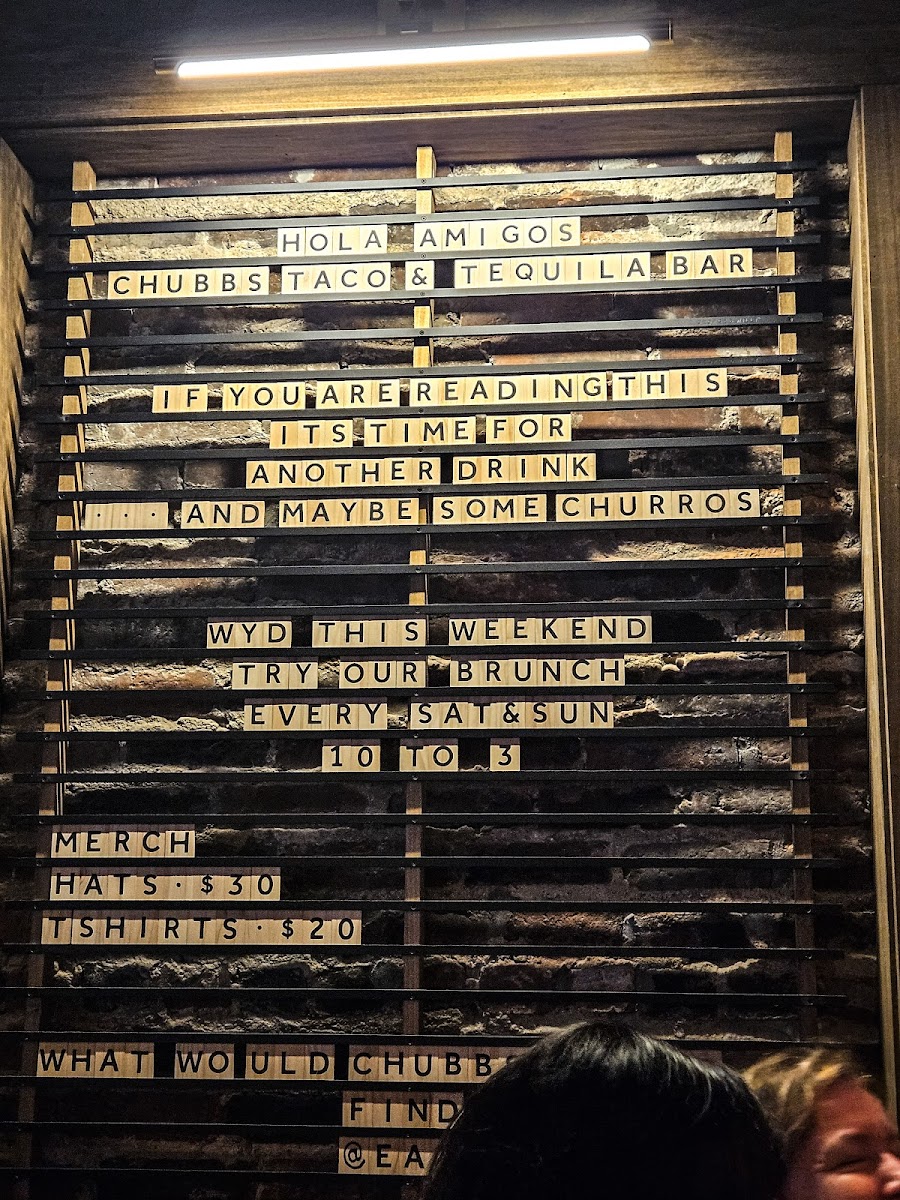 HOLA AMIGOS
CHUBBS TACO & TEQUILA BAR
IF YOU ARE READING THIS
ITS TIME FOR
ANOTHER DRINK
... AND MAYBE SOME CHURROS
WYD THIS WEEKEND
TRY OUR BRUNCH
EVERY SAT&SUN
10 TO 3
MERCH
HATS · $30
TSHIRTS · $20
WHAT WOULD CHUBBS
FIND